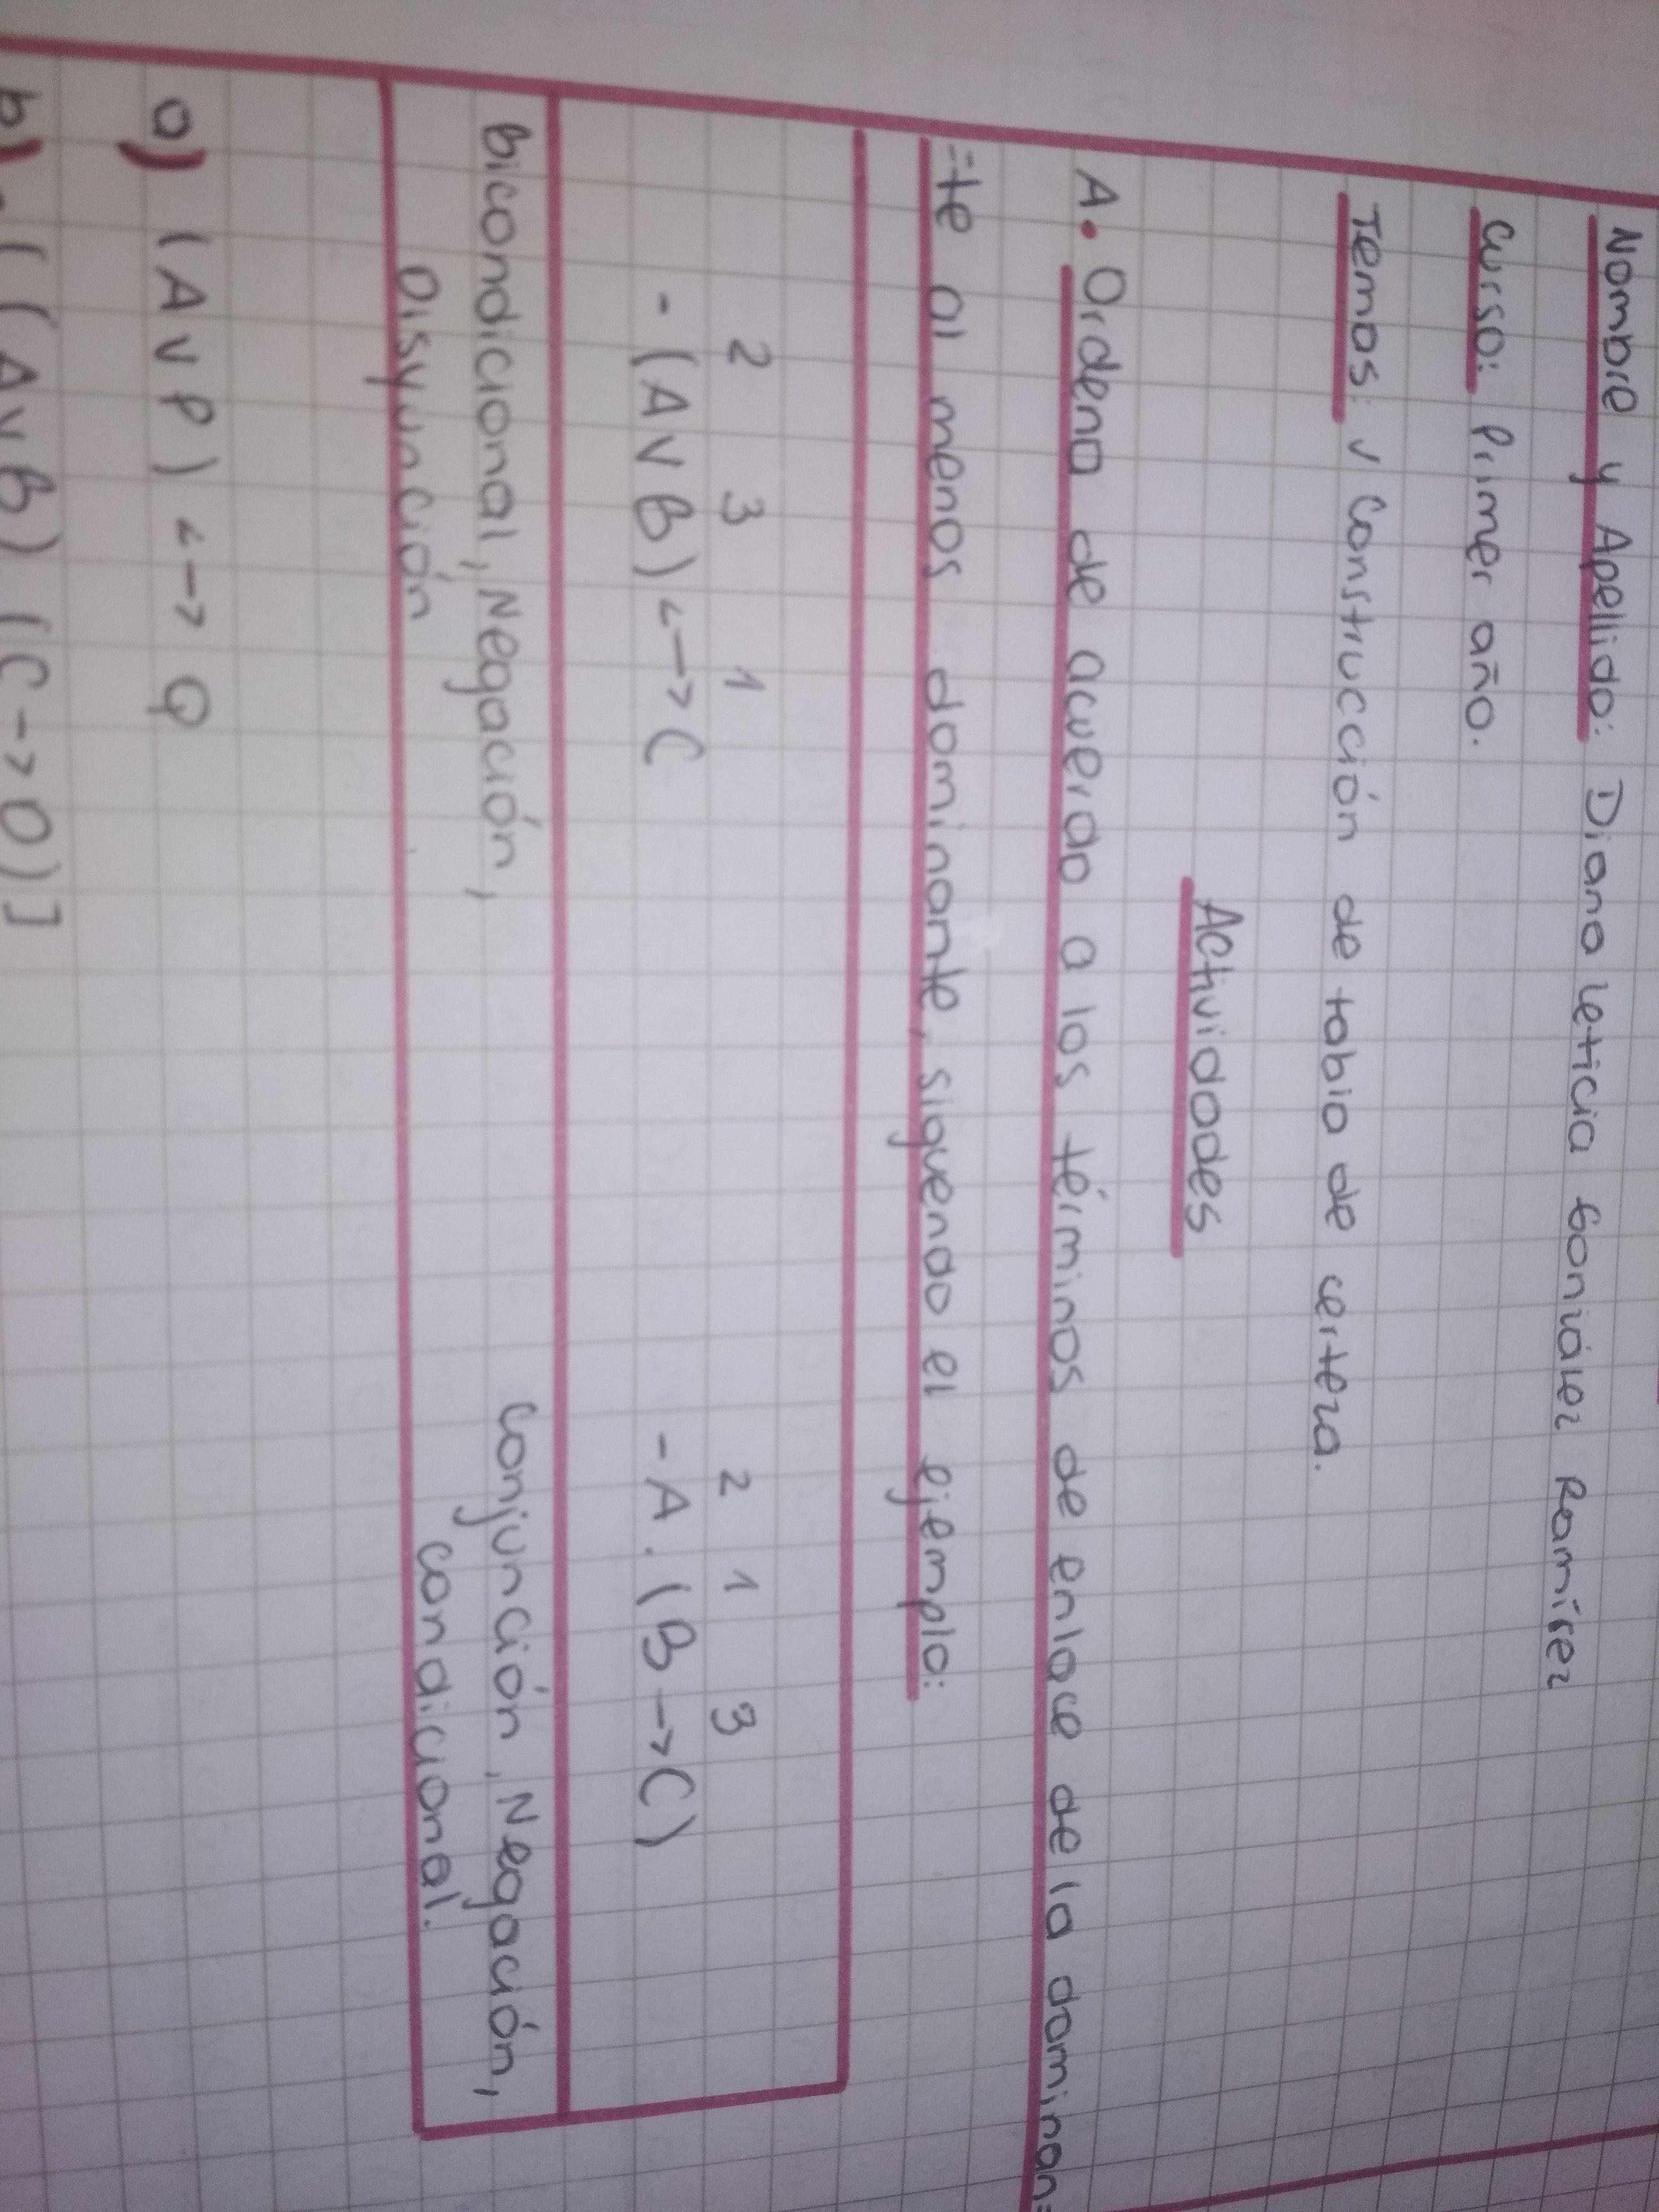 Nombre y Apellido: Diana Leticia González Ramírez
Curso: Primer año.
Temas: ✓ Construcción de tabla de certeza.
Actividades
A. Ordeno de acuerdo a los términos de enlace de la dominan=
=te al menos dominante, siguendo el ejemplo:
2 3 1
- (A v B) <-> C
2 1 3
- A . (B -> C)
Bicondicional, Negación,
Disyunción
Conjunción, Negación,
Condicional.
a) (A v P) <-> Q
b) - [(A v B) (C -> D)]